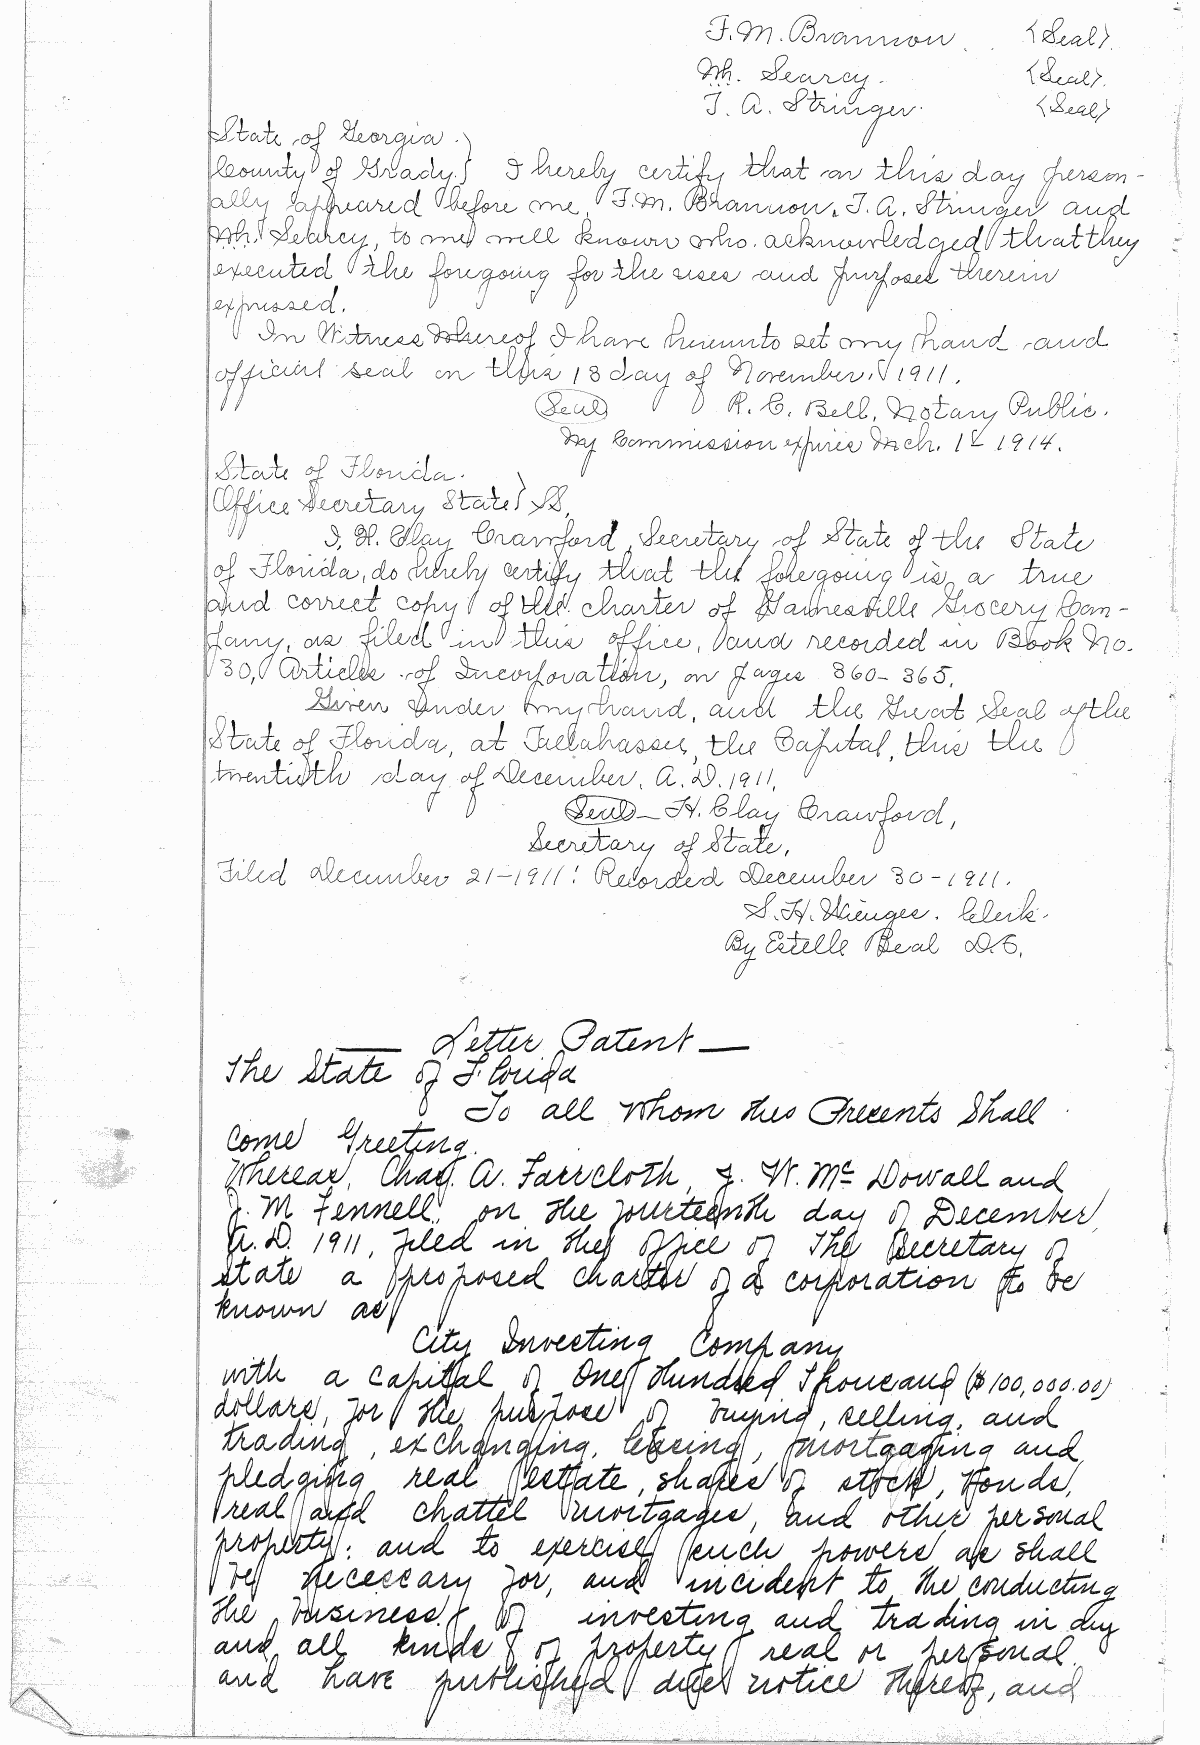 F. M. Brannon. (Seal).
Wh. Searcy. (Seal).
T. A. Stringer. (Seal)
State of Georgia.}
County of Grady.} I hereby certify that on this day person-
ally appeared before me, F.M. Brannon, T. A. Stringer and
Wh. Searcy, to me well known who acknowledged that they
executed the foregoing for the uses and purposes therein
expressed.
In Witness Whereof I have hereunto set my hand and
official seal on this 13 day of November, 1911.
(Seal) R. C. Bell, Notary Public.
My Commission expires Mch. 1st 1914.
State of Florida.
Office Secretary State} SS.
I, H. Clay Crawford, Secretary of State of the State
of Florida, do hereby certify that the foregoing is a true
and correct copy of the charter of Gainesville Grocery Com-
pany, as filed in this office, and recorded in Book No.
30, Articles of Incorporation, on pages 360-365.
Given under my hand, and the Great Seal of the
State of Florida, at Tallahassee, the Capital, this the
twentieth day of December, A.D. 1911.
(Seal)- H. Clay Crawford,
Secretary of State.
Filed December 21-1911: Recorded December 30-1911.
S. H. Wienges. Clerk.
By Estelle Beal D.C.
— Letter Patent —
The State of Florida
To all whom this Presents Shall
Come Greeting.
Whereas, Chas. A. Faircloth, J. W. McDowall and
J. M. Fennell, on the fourteenth day of December,
A.D. 1911, filed in the office of The Secretary of
State a proposed charter of a corporation to be
known as
City Investing Company
with a capital of One Hundred Thousand ($100,000.00)
dollars, for the purpose of buying, selling, and
trading, exchanging, leasing, mortgaging and
pledging real estate, shares of stock, bonds,
real and chattel mortgages, and other personal
property: and to exercise such powers as shall
be necessary for, and incident to the conducting
the business of investing and trading in any
and all kinds of property real or personal
and have published due notice thereof, and